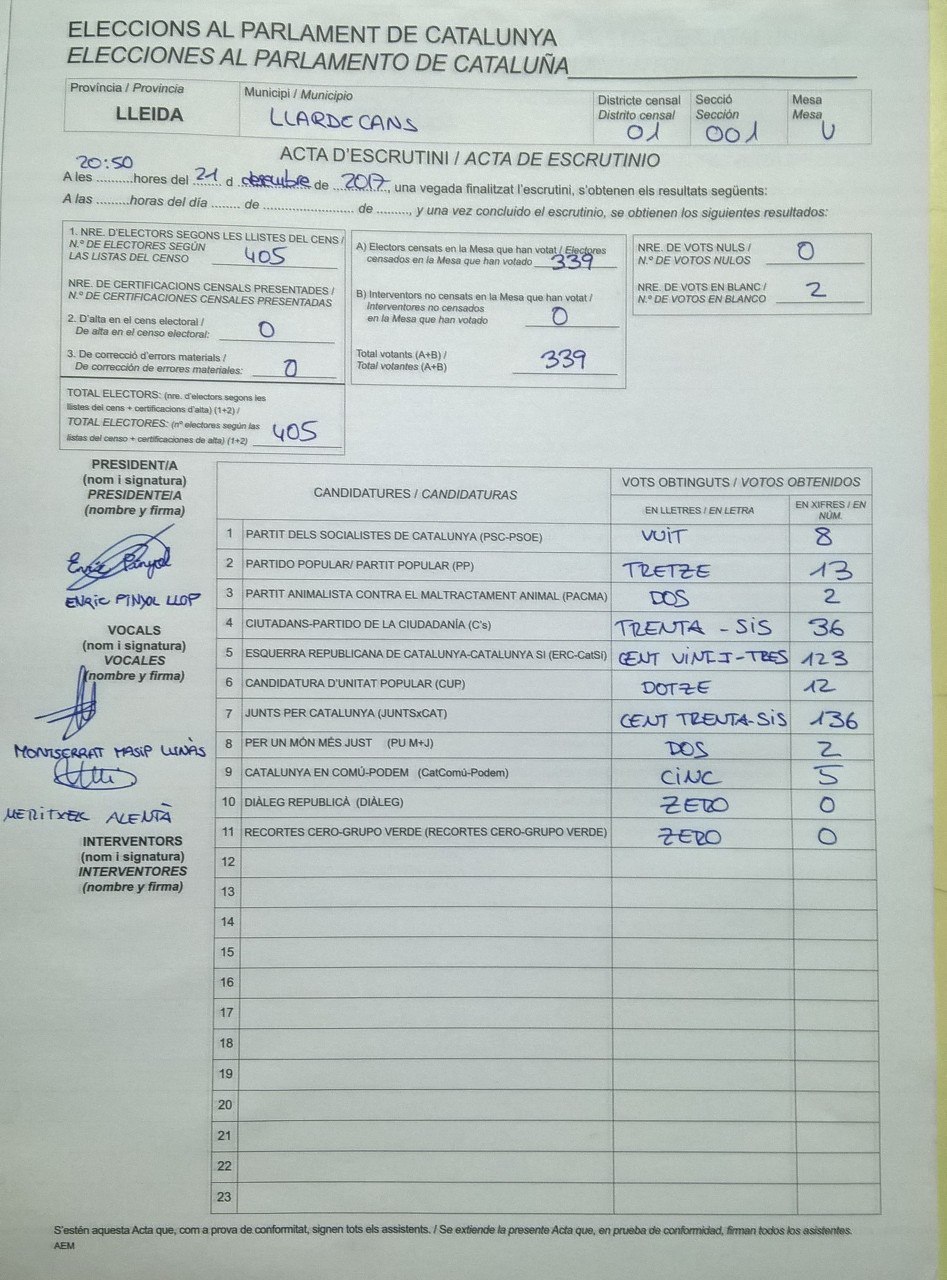 ELECCIONS AL PARLAMENT DE CATALUNYA
ELECCIONES AL PARLAMENTO DE CATALUÑA
Província / Provincia
LLEIDA
Municipi / Municipio
LLARDECANS
Districte censal
Distrito censal
01
Secció
Sección
001
Mesa
Mesa
U
ACTA D'ESCRUTINI / ACTA DE ESCRUTINIO
A les 20:50 hores del 21 d desembre de 2017, una vegada finalitzat l'escrutini, s'obtenen els resultats següents:
A las ..........horas del día ........ de .......................... de ........., y una vez concluido el escrutinio, se obtienen los siguientes resultados:
1. NRE. D'ELECTORS SEGONS LES LLISTES DEL CENS /
N.º DE ELECTORES SEGÚN
LAS LISTAS DEL CENSO 405
NRE. DE CERTIFICACIONS CENSALS PRESENTADES /
N.º DE CERTIFICACIONES CENSALES PRESENTADAS
2. D'alta en el cens electoral /
De alta en el censo electoral: 0
3. De correcció d'errors materials /
De corrección de errores materiales: 0
TOTAL ELECTORS: (nre. d'electors segons les
llistes del cens + certificacions d'alta) (1+2) /
TOTAL ELECTORES: (nº electores según las
listas del censo + certificaciones de alta) (1+2) 405
A) Electors censats en la Mesa que han votat / Electores
censados en la Mesa que han votado 339
B) Interventors no censats en la Mesa que han votat /
Interventores no censados
en la Mesa que han votado 0
Total votants (A+B) /
Total votantes (A+B) 339
NRE. DE VOTS NULS /
N.º DE VOTOS NULOS 0
NRE. DE VOTS EN BLANC /
N.º DE VOTOS EN BLANCO 2
PRESIDENT/A
(nom i signatura)
PRESIDENTE/A
(nombre y firma)
Enric Pinyol
ENRIC PINYOL LLOP
VOCALS
(nom i signatura)
VOCALES
(nombre y firma)
MONTSERRAT MASIP
ALENTÀ
INTERVENTORS
(nom i signatura)
INTERVENTORES
(nombre y firma)
CANDIDATURES / CANDIDATURAS
VOTS OBTINGUTS / VOTOS OBTENIDOS
EN LLETRES / EN LETRA
EN XIFRES / EN NÚM.
1 PARTIT DELS SOCIALISTES DE CATALUNYA (PSC-PSOE) VUIT 8
2 PARTIDO POPULAR/ PARTIT POPULAR (PP) TRETZE 13
3 PARTIT ANIMALISTA CONTRA EL MALTRACTAMENT ANIMAL (PACMA) DOS 2
4 CIUTADANS-PARTIDO DE LA CIUDADANÍA (C's) TRENTA - SIS 36
5 ESQUERRA REPUBLICANA DE CATALUNYA-CATALUNYA SI (ERC-CatSI) CENT VINT-I-TRES 123
6 CANDIDATURA D'UNITAT POPULAR (CUP) DOTZE 12
7 JUNTS PER CATALUNYA (JUNTSxCAT) CENT TRENTA-SIS 136
8 PER UN MÓN MÉS JUST (PU M+J) DOS 2
9 CATALUNYA EN COMÚ-PODEM (CatComú-Podem) CINC 5
10 DIÀLEG REPUBLICÀ (DIÀLEG) ZERO 0
11 RECORTES CERO-GRUPO VERDE (RECORTES CERO-GRUPO VERDE) ZERO 0
12
13
14
15
16
17
18
19
20
21
22
23
S'estén aquesta Acta que, com a prova de conformitat, signen tots els assistents. / Se extiende la presente Acta que, en prueba de conformidad, firman todos los asistentes.
AEM